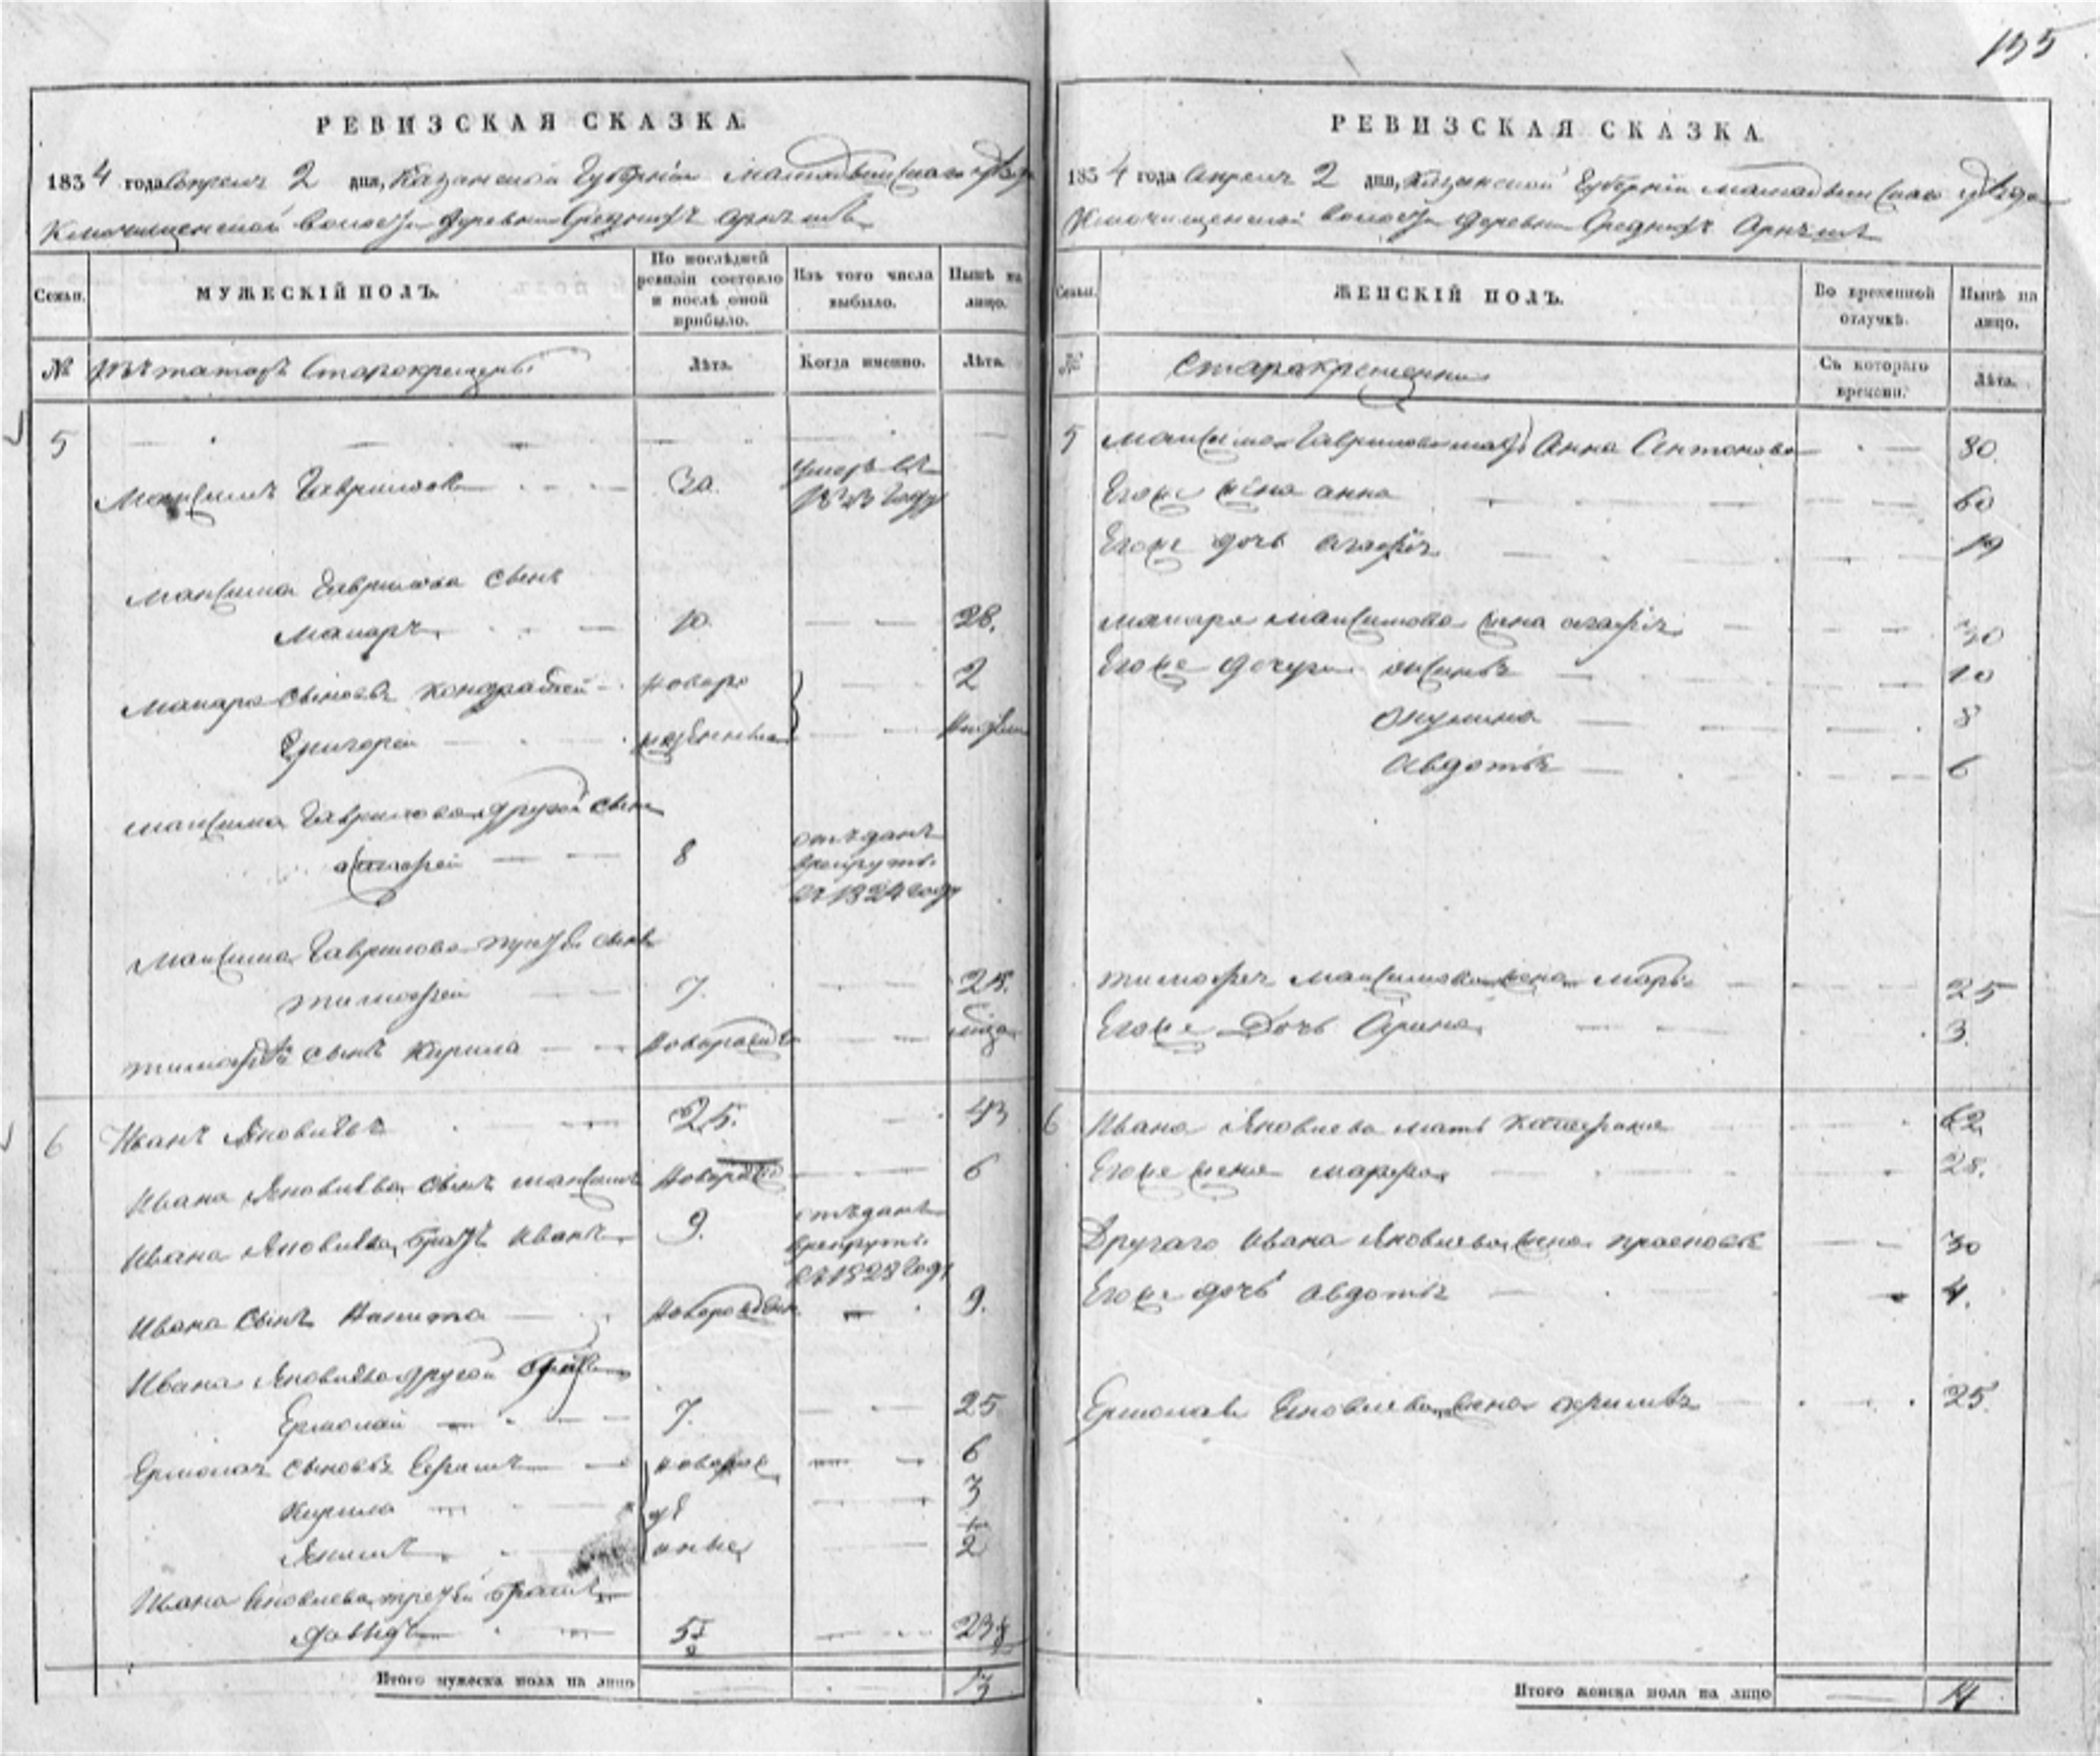 195
РЕВИЗСКАЯ СКАЗКА.
1834 года Апреля 2 дня, Казанской Губернiи Мамадышскаго уѣзда
Ключищенской волости деревни Среднихъ Арняшъ
Семьи.
МУЖЕСКIЙ ПОЛЪ.
По послѣдней ревизiи состояло и послѣ оной прибыло.
Изъ того числа выбыло.
Нынѣ на лицо.
№
Изъ татаръ Старокрещены
Лѣта.
Когда именно.
Лѣта.
5
Максимъ Гавриловъ 30. умеръ въ
1823 году
Максима Гаврилова сынъ
Макаръ 10. 28.
Макара сыновья Кондратей новоро 2
Григорей жденныя
Максима Гаврилова другой сынъ
8 отъданъ
врекруты
въ 1824 году
Максима Гаврилова третей сынъ
Тимофей 7. 25.
Тимофея сынъ Кирила новорожде
6 Иванъ Яковлевъ 25. 43
Ивана Яковлева сынъ Максимъ новорожд 6
Ивана Яковлева братъ Иванъ 9. отъданъ
врекруты
въ 1828 году
Ивана сынъ Никита новорожден 9.
Ивана Яковлева другой братъ
Ермолай 7. 25
Ермолая сыновья новорож 6
Кирила де 3
Якимъ нные 2
Ивана Яковлева третей братъ
Давыдъ 5½ 23½
Итого мужеска пола на лицо 13
РЕВИЗСКАЯ СКАЗКА.
1834 года Апреля 2 дня, Казанской Губернiи Мамадышскаго уѣзда
Ключищенской волости деревни Среднихъ Арняшъ
Семьи.
ЖЕНСКIЙ ПОЛЪ.
Во временной отлучкѣ.
Нынѣ на лицо.
№
Старокрещенни
Съ котораго времени.
Лѣта.
5 Максима Гаврилова мать Анна Антонова 80.
Егоже жена Анна 60
Егоже дочь Агафiя 19
Макара Максимова жена Агафiя 30
Егоже дочери Аксинья 10
Окулина 8
Авдотья 6
Тимофея Максимова жена Марья 25
Егоже Дочь Арина 3.
6 Ивана Яковлева мать Катерина 62.
Егоже жена Марфа 28.
Другаго Ивана Яковлева жена Прасковья 30
Егоже дочь Авдотья 4.
Ермолая Яковлева жена 25
Итого женска пола на лицо 14